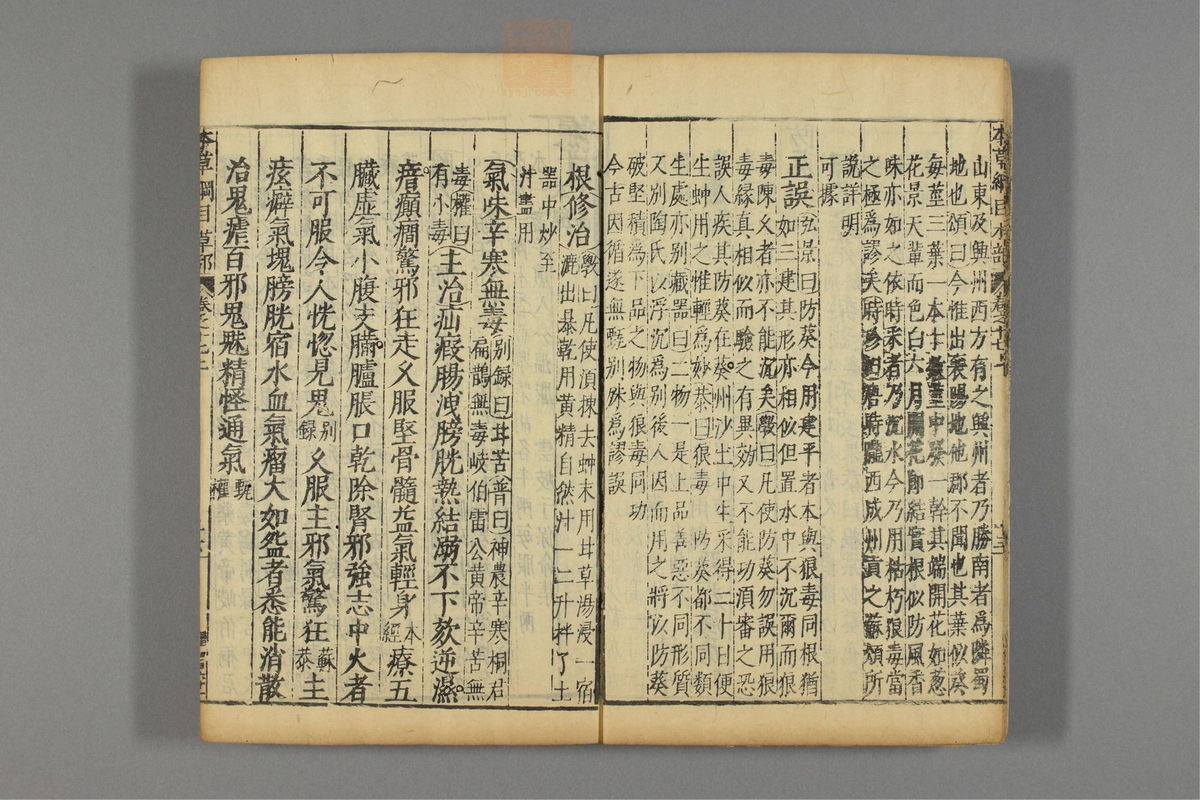 山東及興州西方有之興州者乃勝南者爲隣蜀
地也頌曰今惟出襄陽地他郡不聞也其葉似葵
每莖三葉一本十數莖中發一幹其端開花如葱
花景天輩而色白六月開花卽結實根似防風香
味亦如之依時采者乃沉水今乃用枯朽狼毒當
之極爲謬矣時珍曰唐時隴西成州貢之蘇頌所
說詳明
可據
正誤 弘景曰防葵今用建平者本與狼毒同根猶
如三建其形亦相似但置水中不沉爾而狼
毒陳久者亦不能沉矣斅曰凡使防葵勿誤用狼
毒緣真相似而驗之有異効又不能功湏審之恐
誤人疾其防葵在葵州沙土中生采得二十日便
生蚛用之惟輕爲妙恭曰狼毒 防葵都不同類
生處亦别藏器曰二物一是上品善惡不同形質
又别陶氏以浮沉爲别後人因而用之將以防葵
破堅積爲下品之物與狼毒同功
今古因循遂無甄别殊爲謬誤
根修治 斅曰凡使湏揀去蚛末用甘草湯浸一宿
漉出暴乾用黃精自然汁一二升拌了土
器中炒至
汁盡用
氣味辛寒無毒 别録曰甘苦普曰神農辛寒桐君
扁鵲無毒岐伯雷公黃帝辛苦無
毒權曰
有小毒 主治疝瘕腸洩膀胱熱結溺不下欬逆濕
瘖癲癎驚邪狂走久服堅骨髓益氣輕身 本經 療五
臟虛氣小腹支滿臚脹口乾除腎邪強志中火者
不可服令人恍惚見鬼 别録 久服主邪氣驚狂 蘇恭 主
痃癖氣塊膀胱宿水血氣瘤大如盌者悉能消散
治鬼瘧百邪鬼魅精怪通氣 甄權
本草綱目 草部 卷之十七上